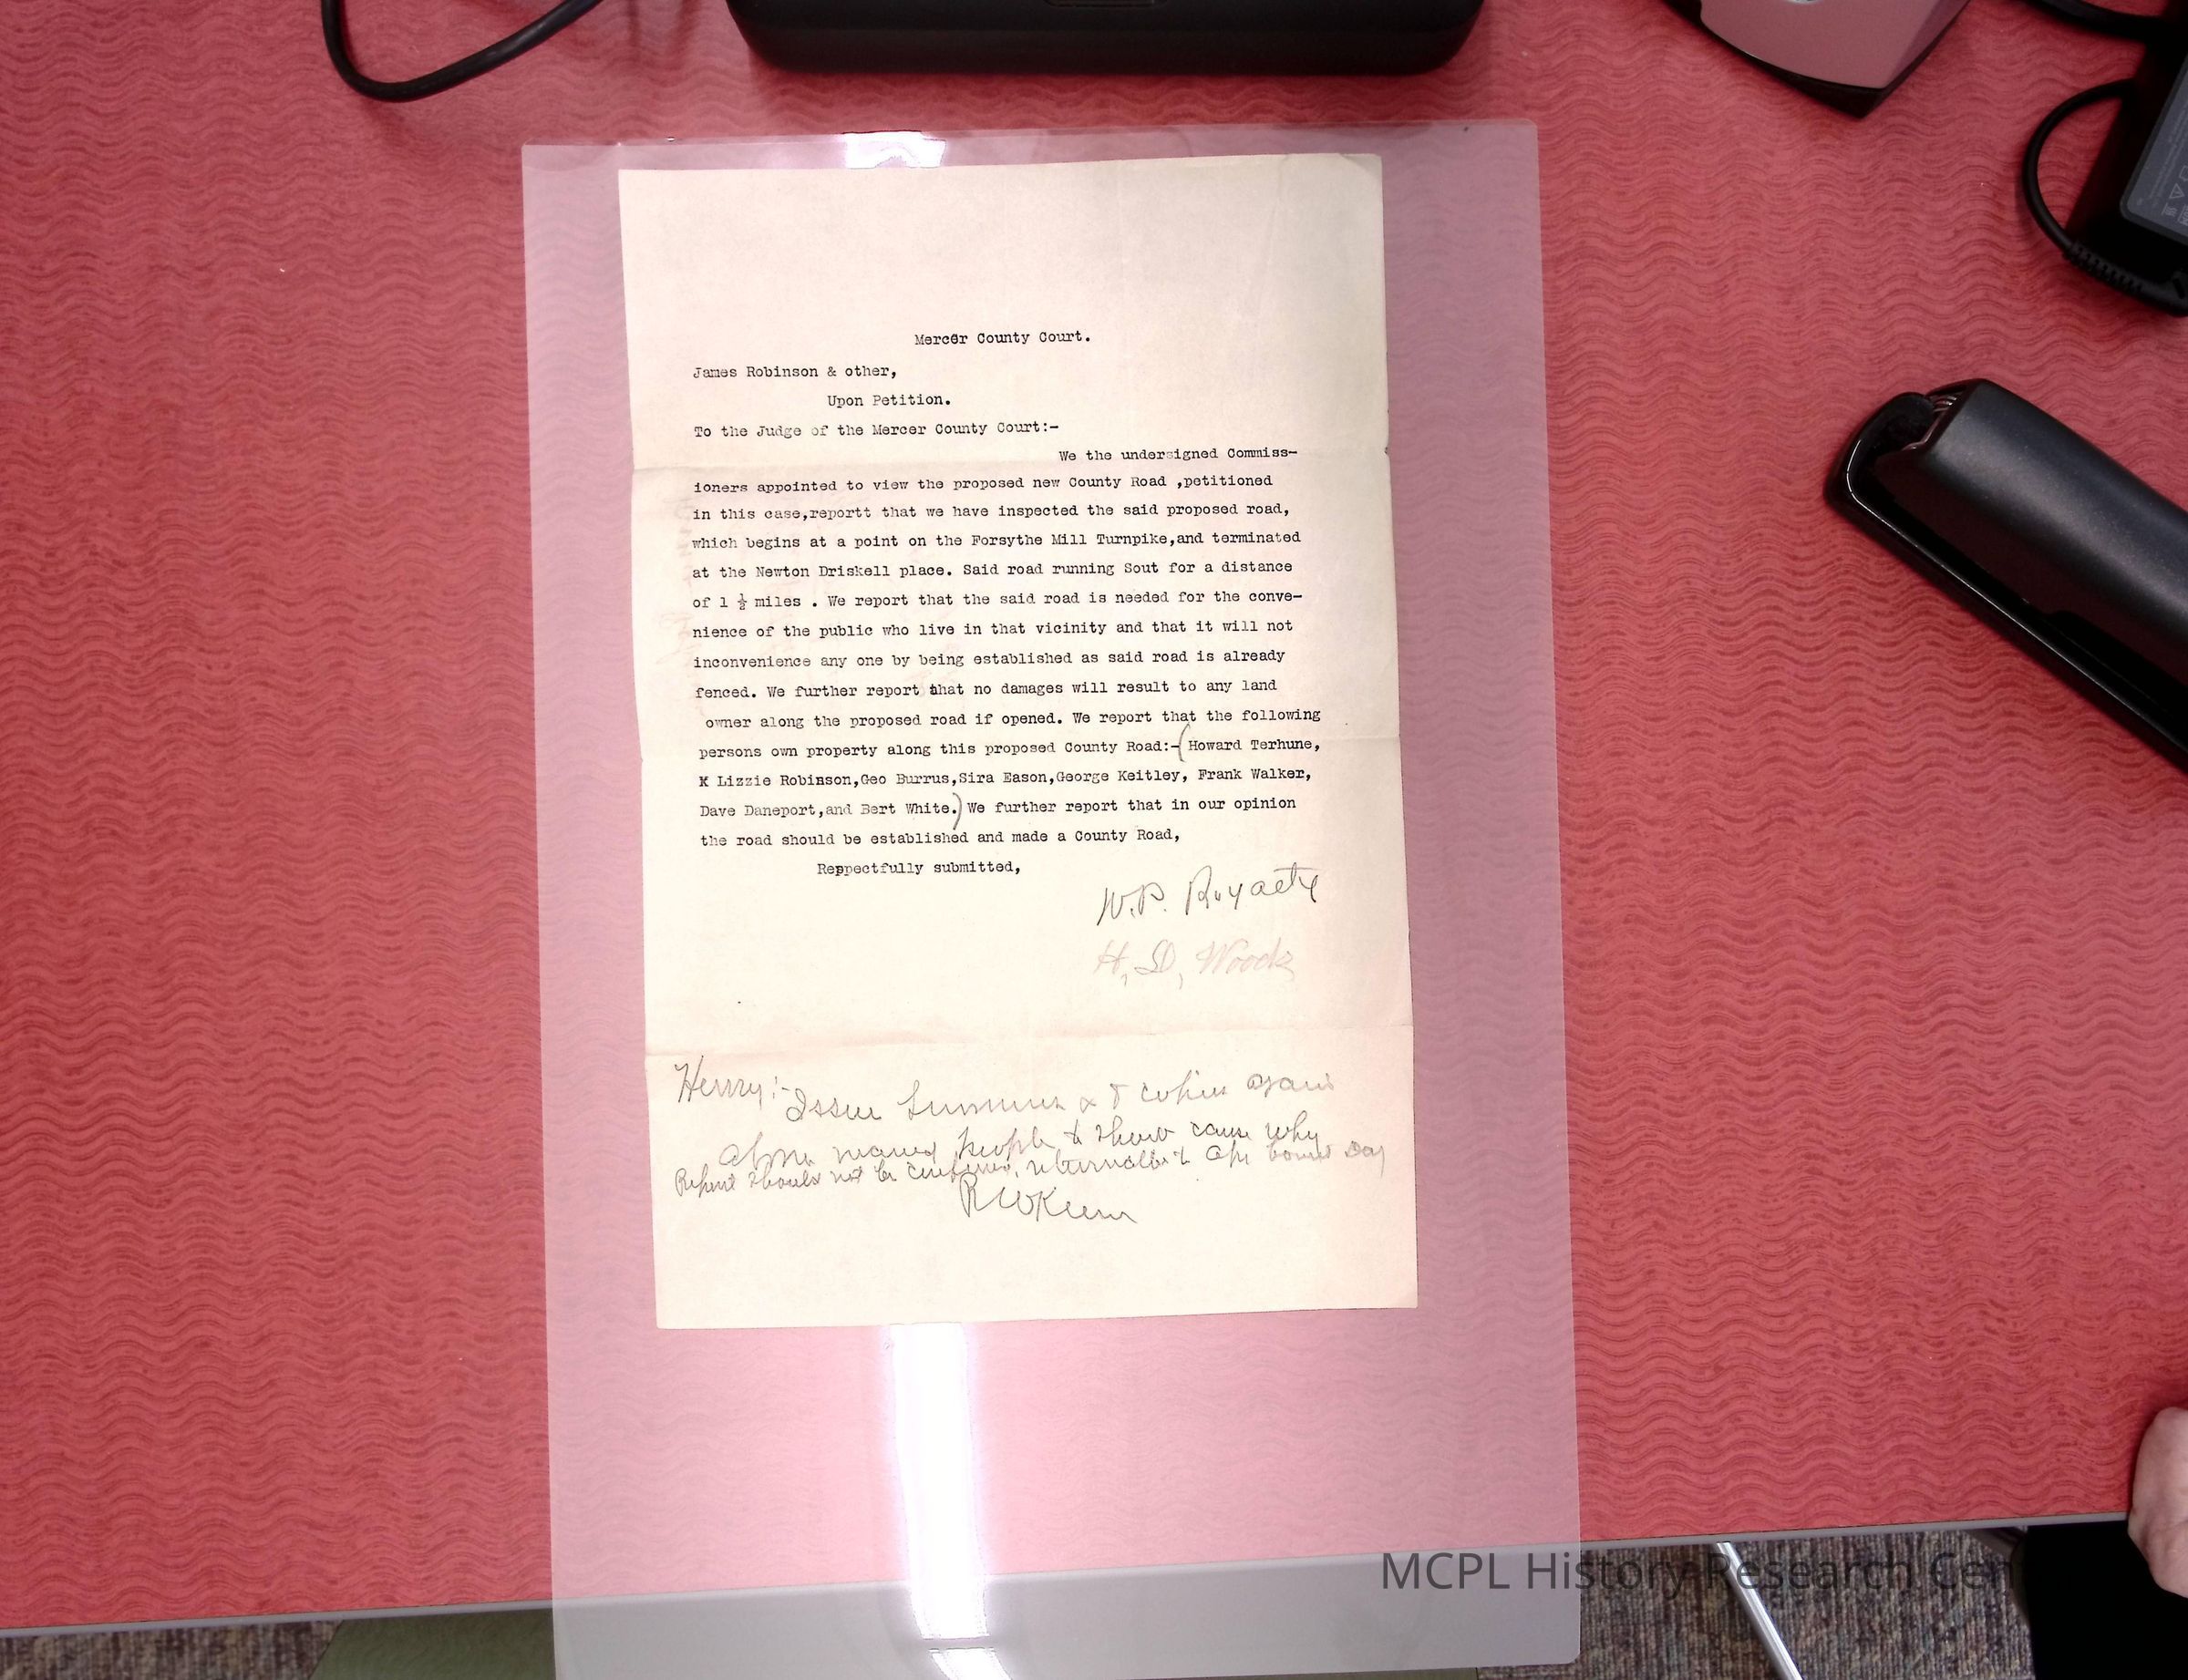 Mercer County Court.
James Robinson & other,
Upon Petition.
To the Judge of the Mercer County Court:-
We the undersigned Commiss-
ioners appointed to view the proposed new County Road ,petitioned
in this case,reportt that we have inspected the said proposed road,
which begins at a point on the Forsythe Mill Turnpike,and terminated
at the Newton Driskell place. Said road running Sout for a distance
of 1 ½ miles . We report that the said road is needed for the conve-
nience of the public who live in that vicinity and that it will not
inconvenience any one by being established as said road is already
fenced. We further report that no damages will result to any land
owner along the proposed road if opened. We report that the following
persons own property along this proposed County Road:-(Howard Terhune,
K Lizzie Robinson,Geo Burrus,Sira Eason,George Keitley, Frank Walker,
Dave Daneport,and Bert White.) We further report that in our opinion
the road should be established and made a County Road,
Reppectfully submitted,
W.P. Royalty
H, D, Woods
Henry:-
Issue Summons & 8 copies again
above named people to show cause why
Report should not be confirmed, returnable to Apr Court Day
R W Keen
MCPL History Research Cen